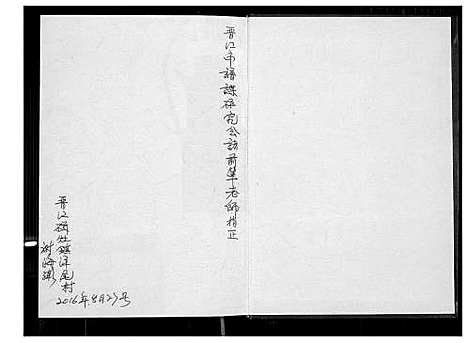 晋江市谱谍研究会访前辈老师指正
晋江磁灶镇洋尾村
2016年8月27号